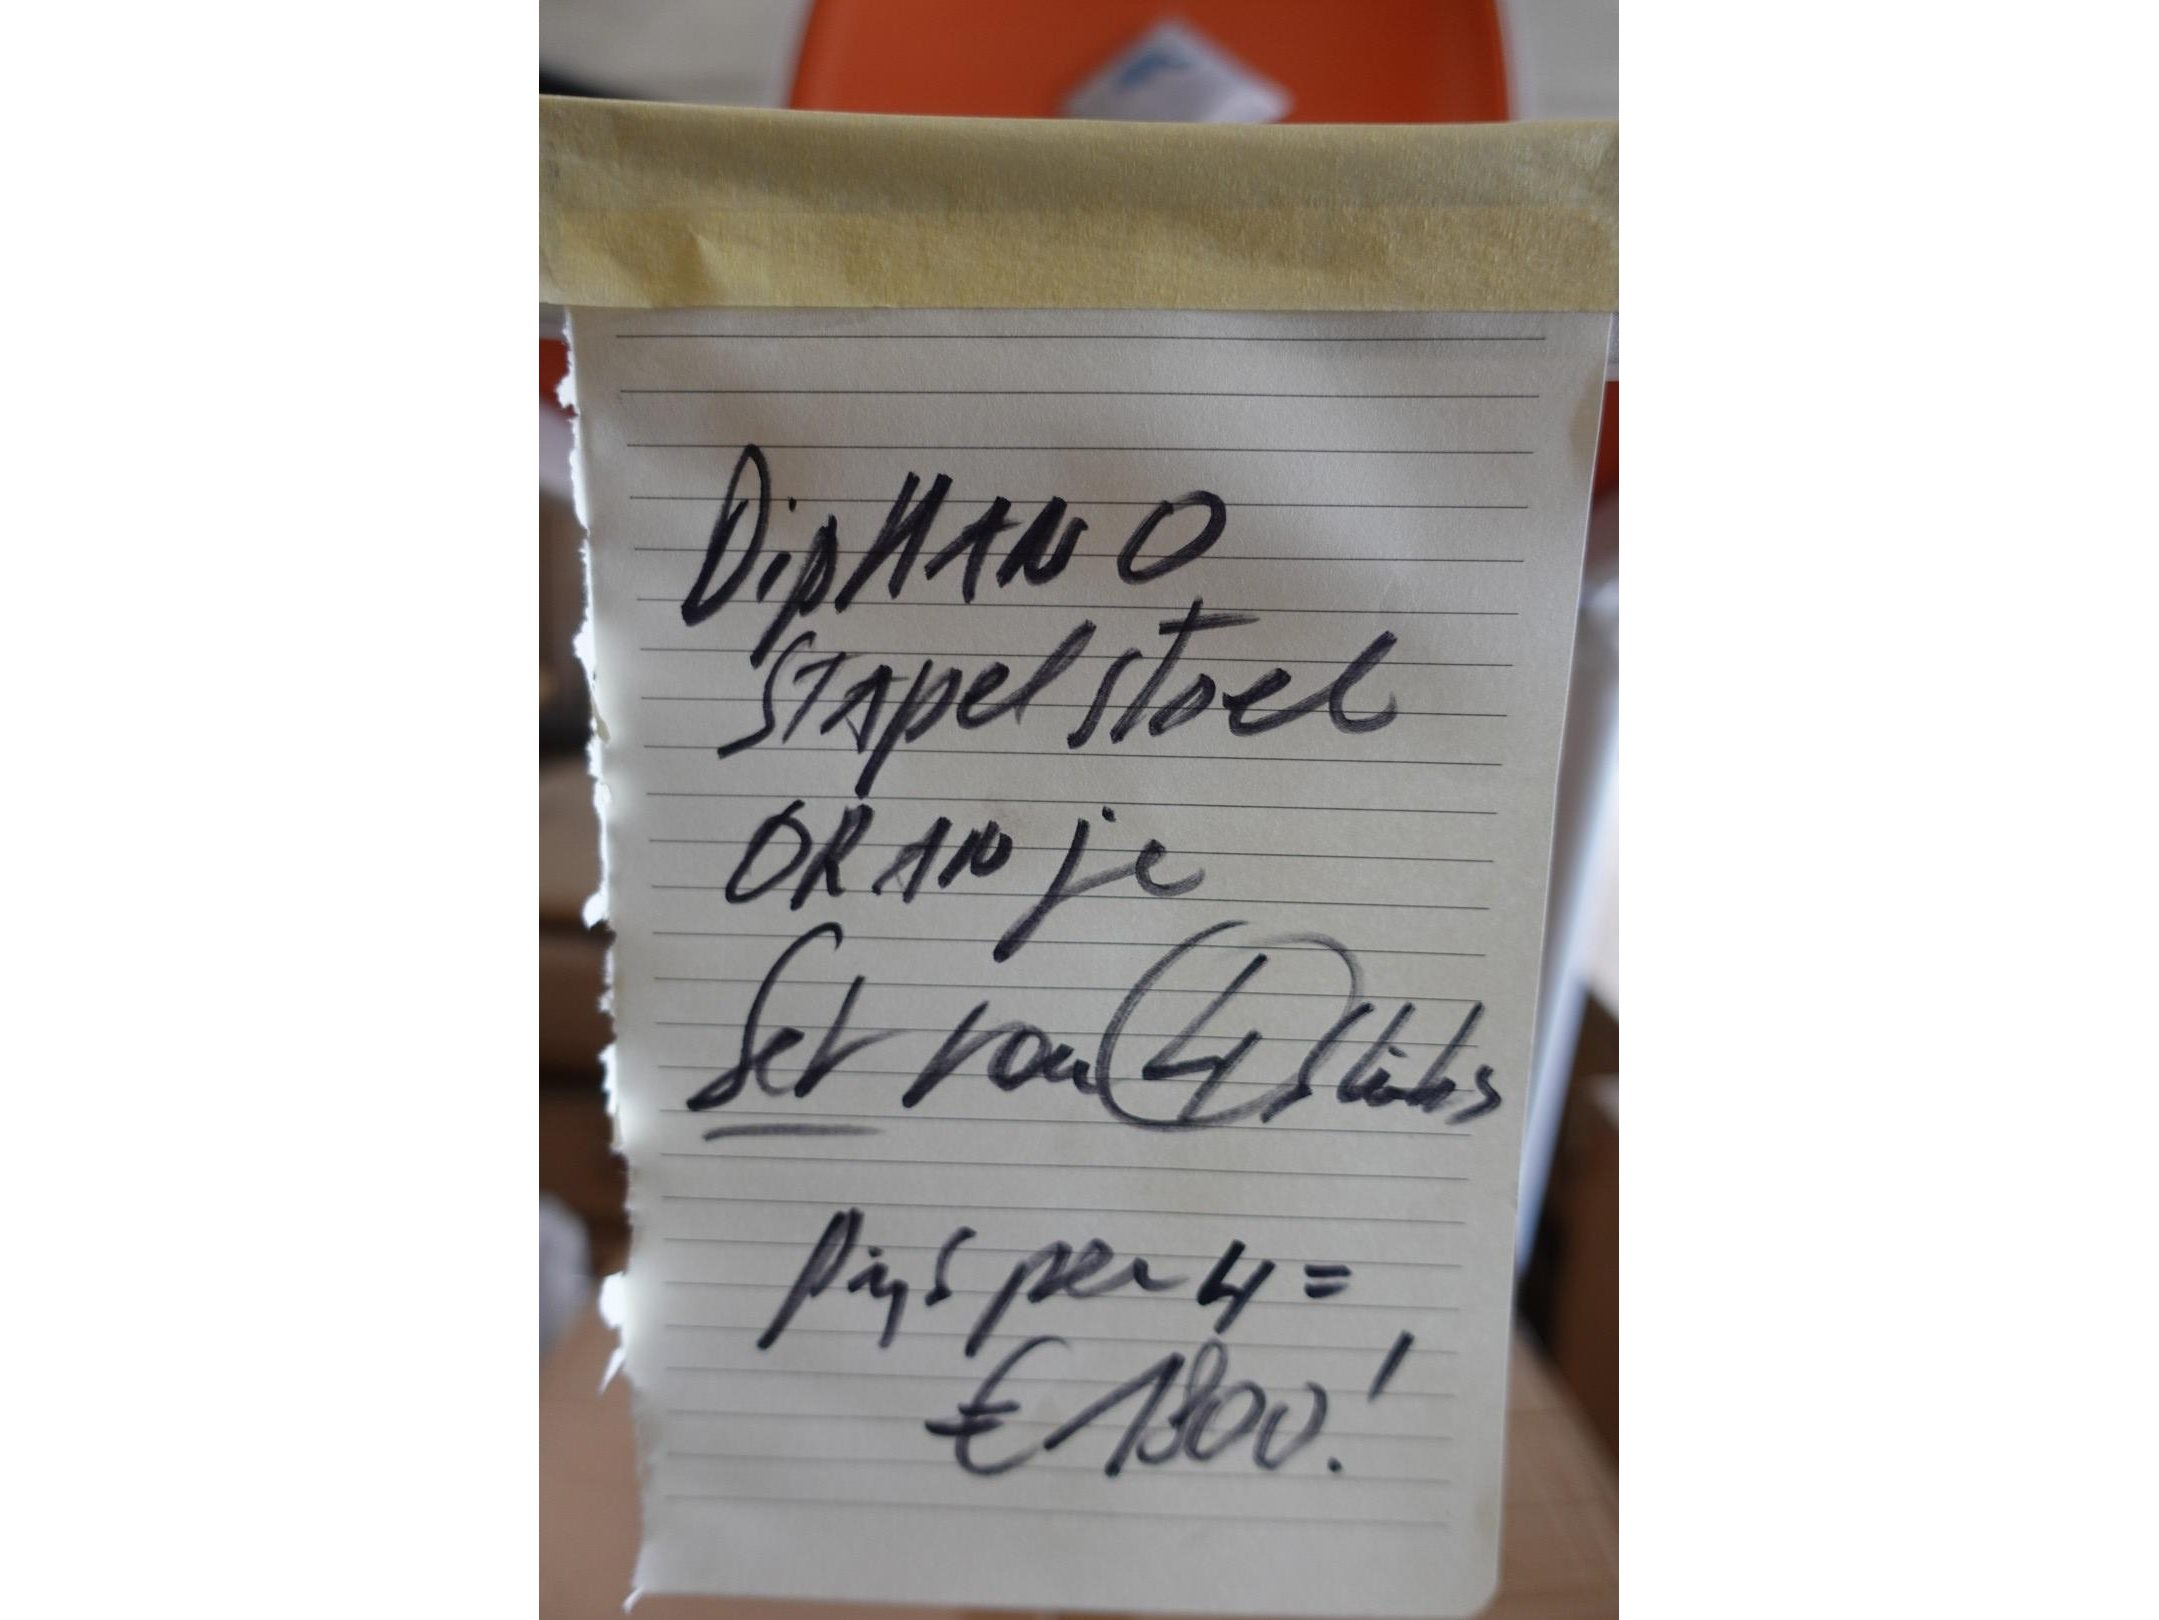 DipHANO
STApelstoel
ORANje
Set van 4 stuks
Prijs per 4 =
€ 1800.!